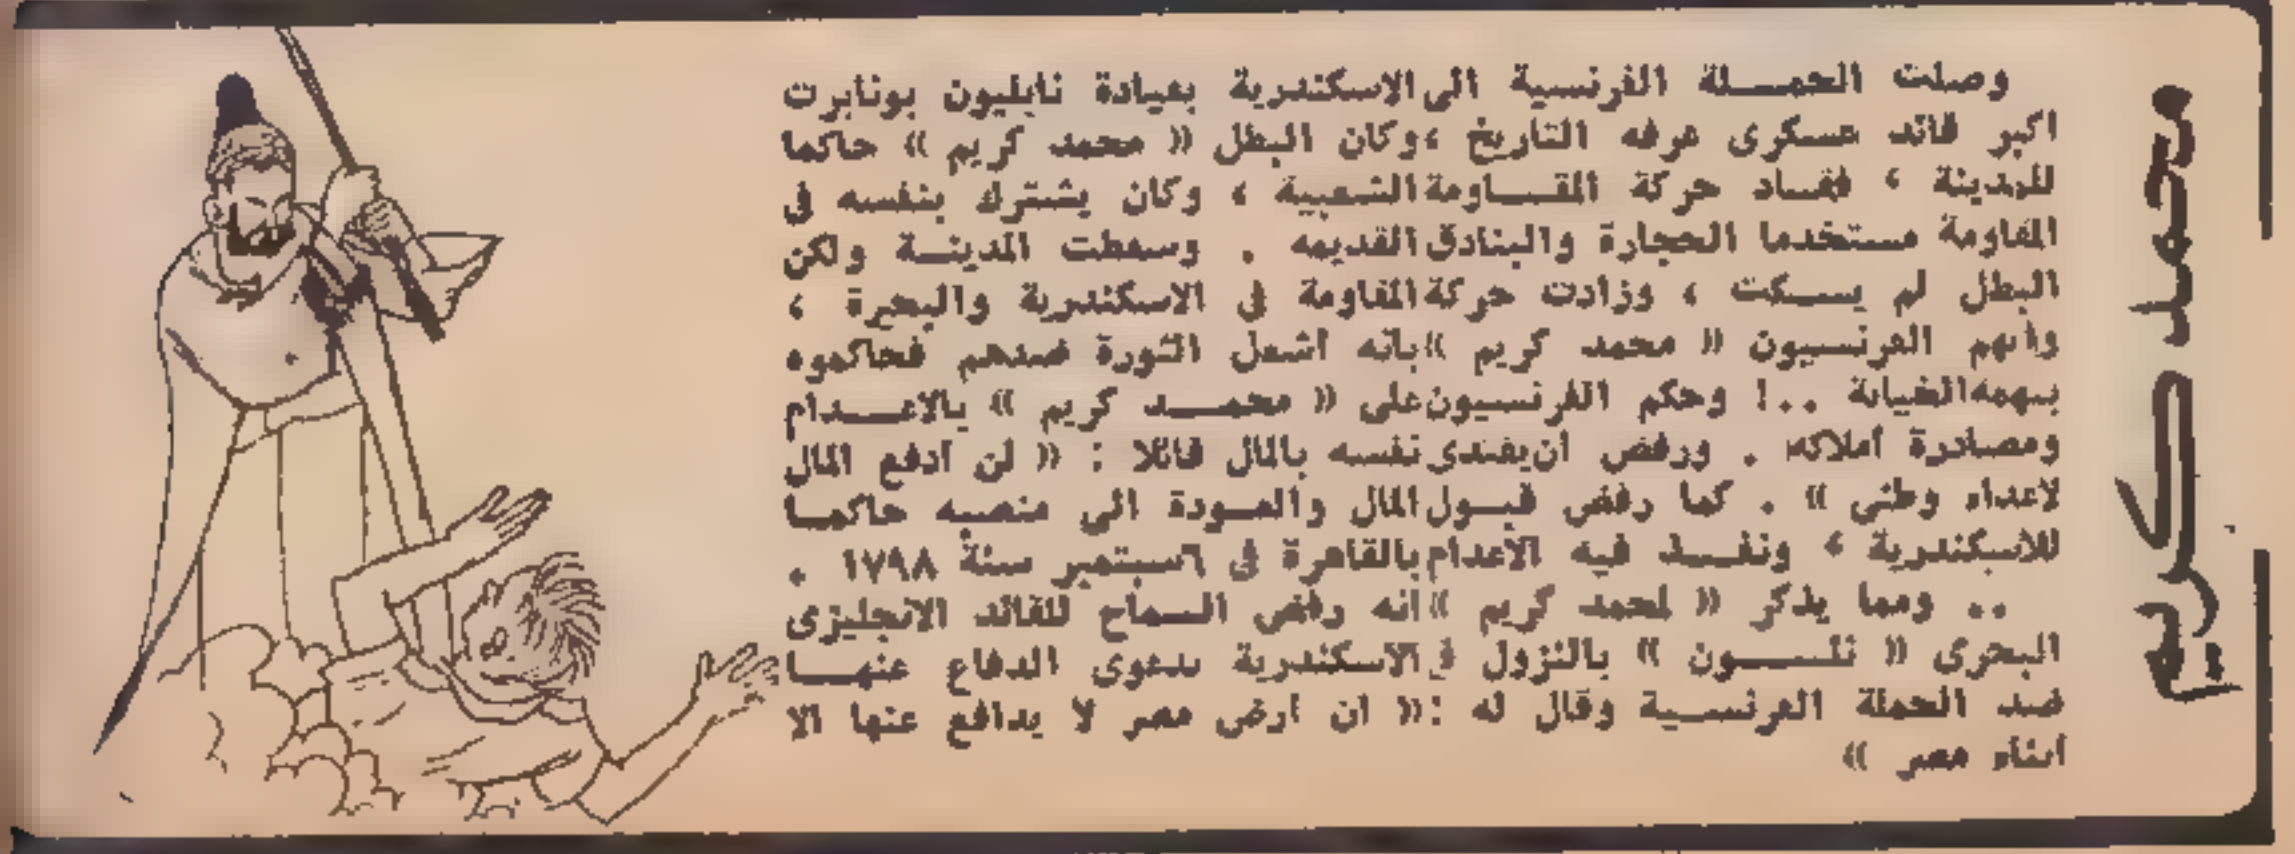 محمد كريم
وصلت الحملة الفرنسية الى الاسكندرية بقيادة نابليون بونابرت
اكبر قائد عسكرى عرفه التاريخ ، وكان البطل « محمد كريم » حاكما
للمدينة ، فقاد حركة المقاومة الشعبية ، وكان يشترك بنفسه فى
المقاومة مستخدما الحجارة والبنادق القديمه . وسقطت المدينة ولكن
البطل لم يسكت ، وزادت حركة المقاومة فى الاسكندرية والبحيرة ،
واتهم الفرنسيون « محمد كريم » بأنه أشعل الثورة ضدهم فحاكموه
بتهمه الخيانة ..! وحكم الفرنسيون على « محمد كريم » بالاعدام
ومصادرة أملاكه . ورفض أن يفتدى نفسه بالمال قائلا : « لن أدفع المال
لاعداء وطنى » . كما رفض قبول المال والعودة الى منصبه حاكما
للاسكندرية ، ونفذ فيه الاعدام بالقاهرة فى ٦ سبتمبر سنة ١٧٩٨ .
.. ومما يذكر « لمحمد كريم » أنه رفض السماح للقائد الانجليزى
البحرى « نلسون » بالنزول فى الاسكندرية بدعوى الدفاع عنها
ضد الحملة الفرنسية وقال له : « ان أرض مصر لا يدافع عنها الا
أبناء مصر »